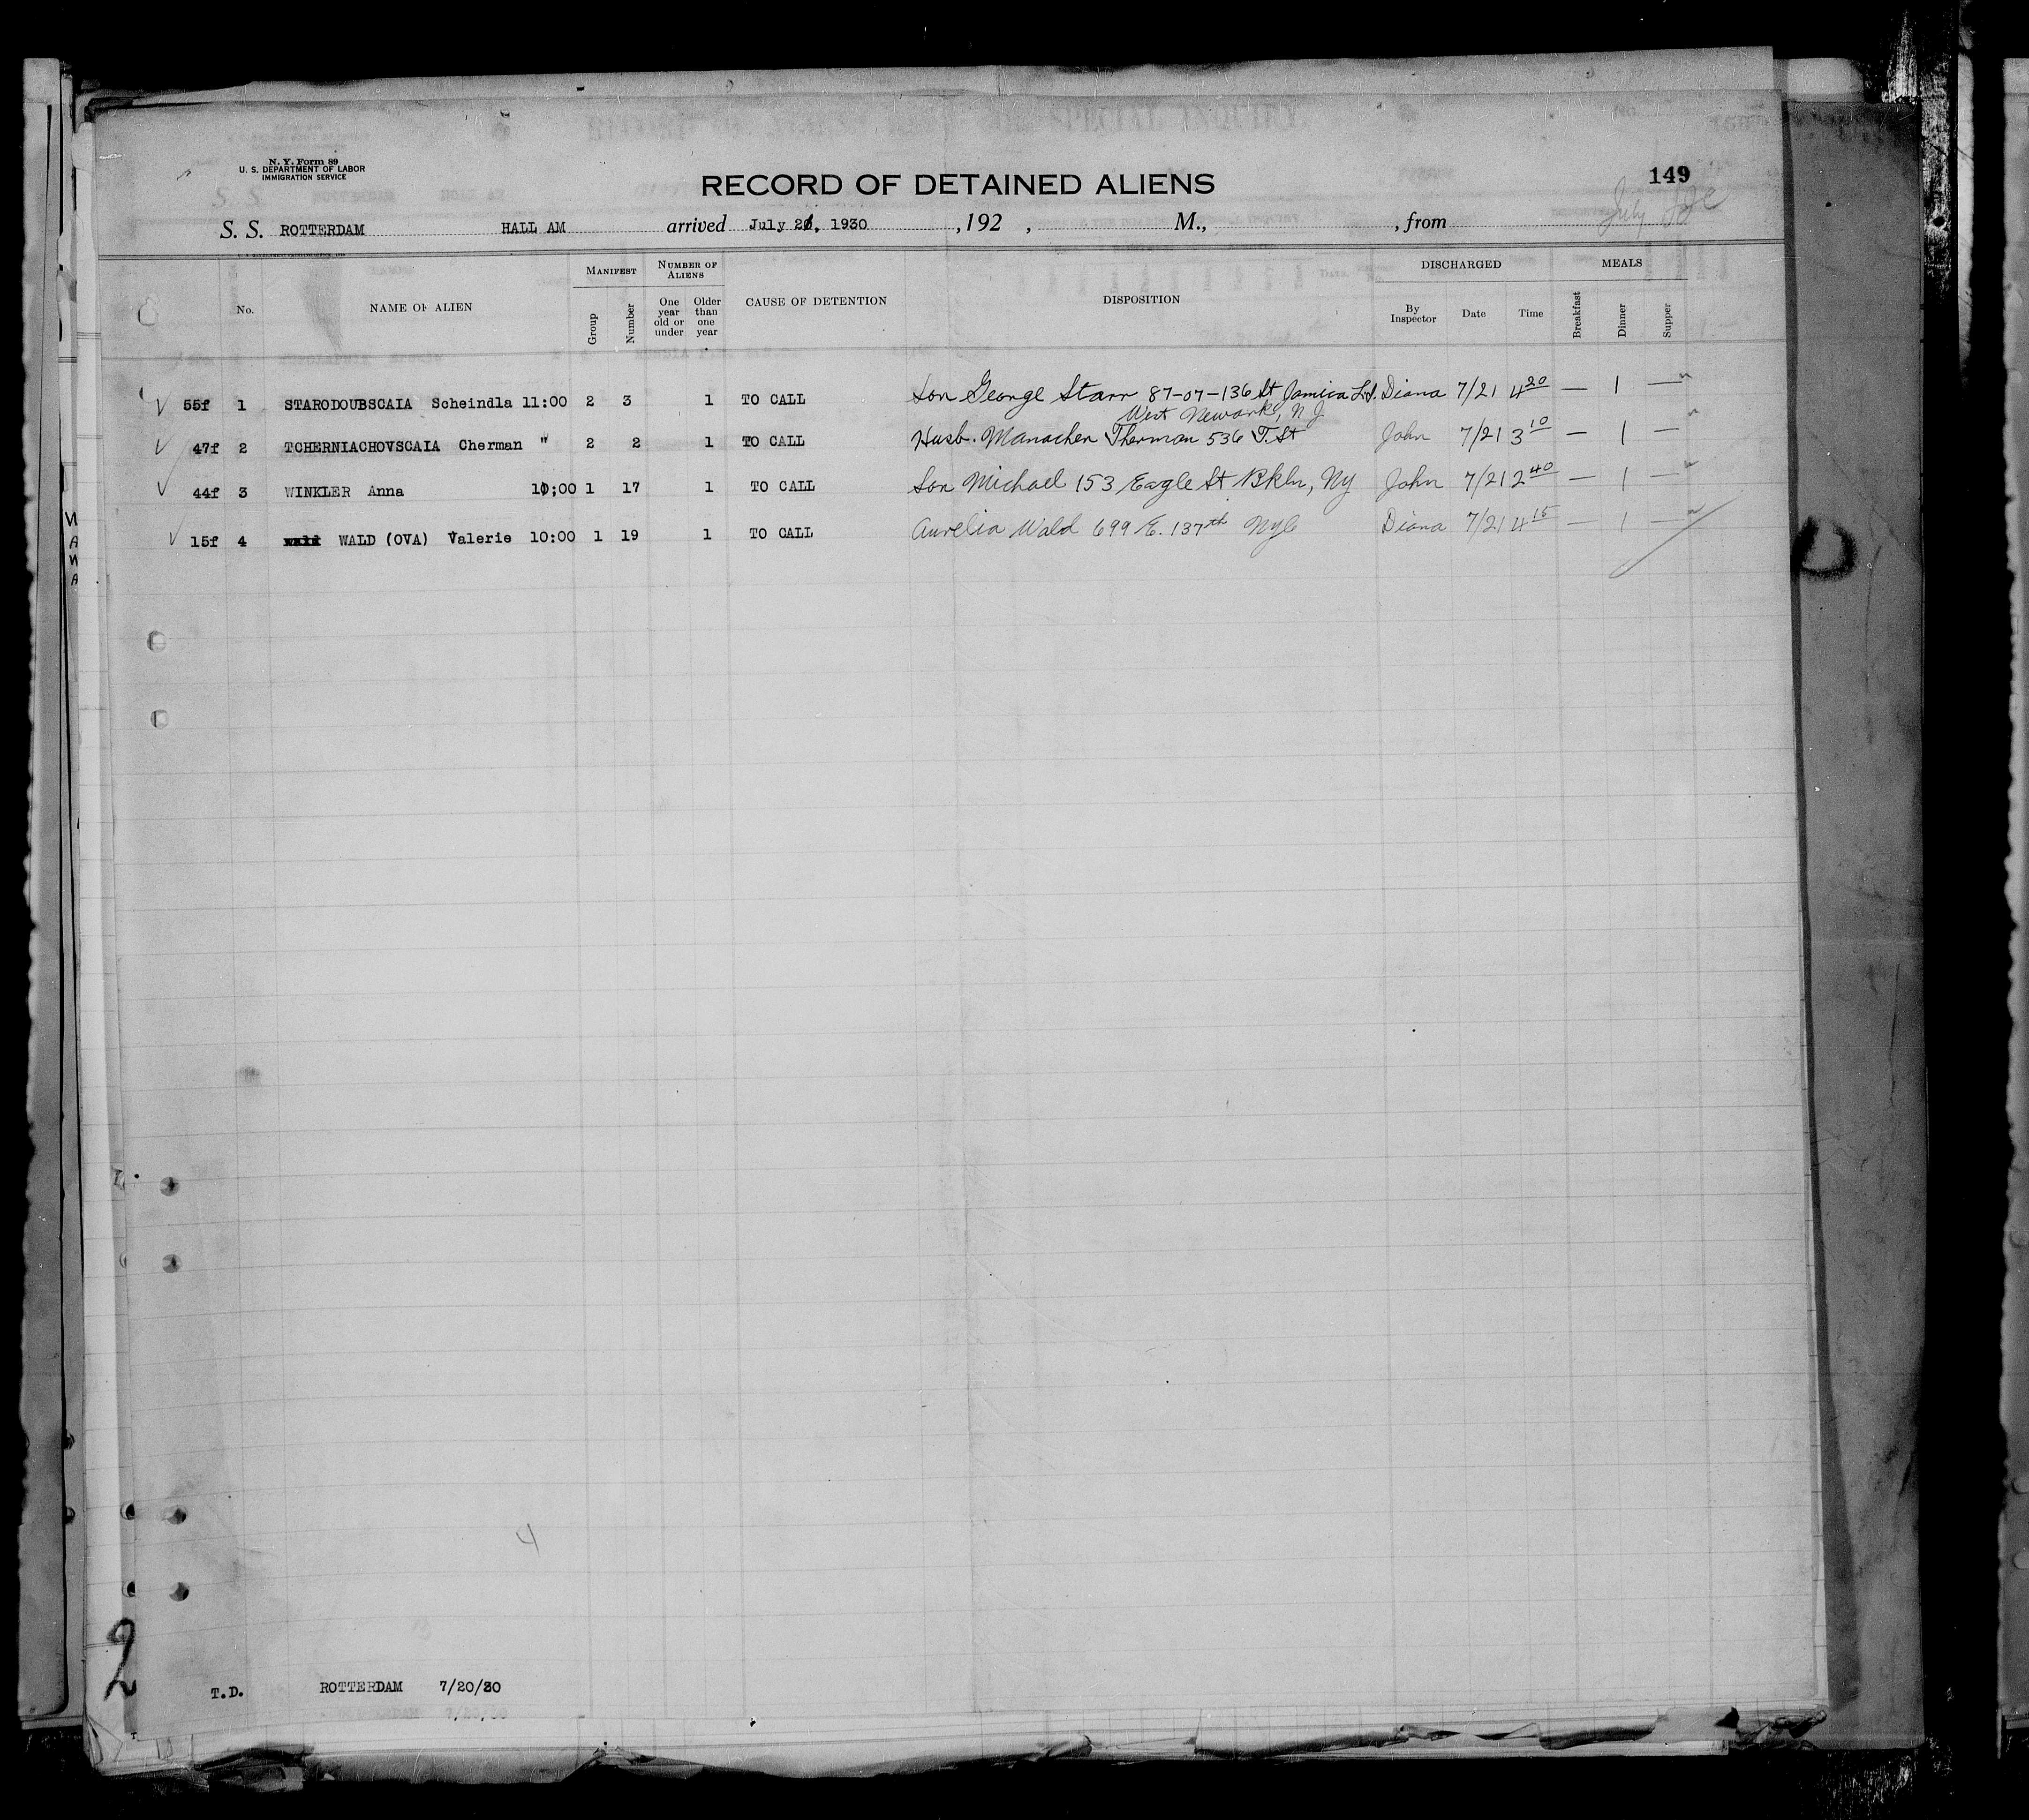 N. Y. Form 89
U. S. DEPARTMENT OF LABOR
IMMIGRATION SERVICE
RECORD OF DETAINED ALIENS
149
S. S. ROTTERDAM HALL AM arrived July 21, 1930 , 192 , M., , from
No. NAME OF ALIEN MANIFEST Group Number NUMBER OF ALIENS One year old or under Older than one year CAUSE OF DETENTION DISPOSITION DISCHARGED By Inspector Date Time MEALS Breakfast Dinner Supper
55f 1 STARODOUBSCAIA Scheindla 11:00 2 3 1 TO CALL Son George Starr 87-07-136 St Jamica L.I. Diana 7/21 4 20 — 1 —
West Newark, N J
47f 2 TCHERNIACHOVSCAIA Cherman " 2 2 1 TO CALL Husb. Manachen Therman 536 St John 7/21 3 10 — 1 —
44f 3 WINKLER Anna 10:00 1 17 1 TO CALL Son Michael 153 Eagle St Bkln, Ny John 7/21 2 40 — 1 —
15f 4 WALD (OVA) Valerie 10:00 1 19 1 TO CALL Aurelia Wald 699 E. 137th Nyc Diana 7/21 4 15 — 1 —
4
2
T.D. ROTTERDAM 7/20/30